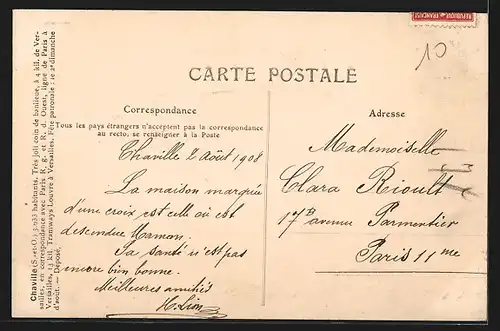 RÉPUBLIQUE FRANÇAISE
10
CARTE POSTALE
Correspondance
Tous les pays étrangers n'acceptent pas la correspondance
au recto, se renseigner à la Poste
Chaville 2 Août 1908
La maison marquée
d'une croix est celle où est
descendue Maman.
Sa santé n'est pas
encore bien bonne.
Meilleures amitiés
H. Lion
Adresse
Mademoiselle
Clara Rioult
17B avenue Parmentier
Paris 11me
Chaville (S.-et-O.) 3.033 habitants. Très joli coin de banlieue, à 4 kil. de Ver-
sailles, en correspondance avec Paris R. g. et R. d. Ouest, ligne de Paris à
Versailles, 13 kil. Tramways Louvre à Versailles. Fête patronale : le 2e dimanche
d'août. — Déposé.